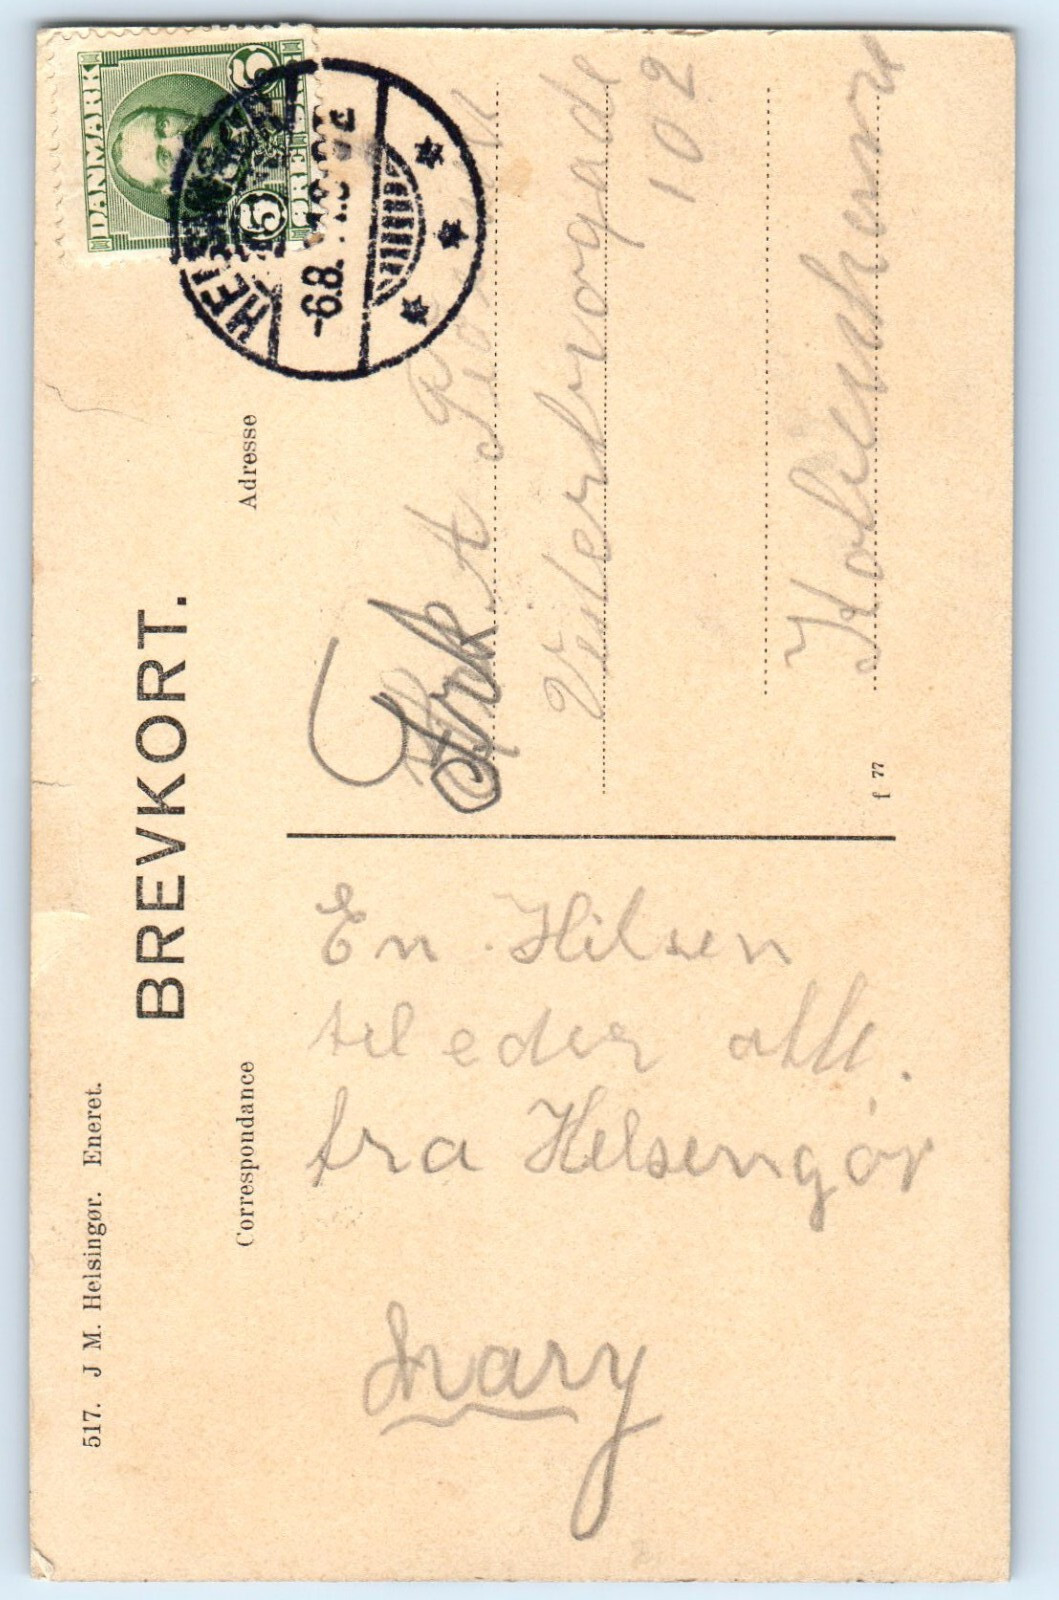 517. J M. Helsingør. Eneret.
BREVKORT.
Correspondance
Adresse
DANMARK
5
ØRE
HELSINGØR
-6.8.
En Hilsen
til eder alle.
fra Helsengør
Mary
Frk
A
Vesterbrogade
102
Kobenhavn
f 77